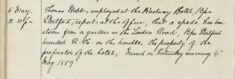 6 May. Thomas Webb, employed at the Railway Hotel, Bps
12 noon Stortford, reports at the office, that a spade has been
stolen from a garden in the London Road, Bps Stortford
branded R.H. on the handle, the property of the
proprietor of the hotel, missed on Saturday morning 4th
May 1889.